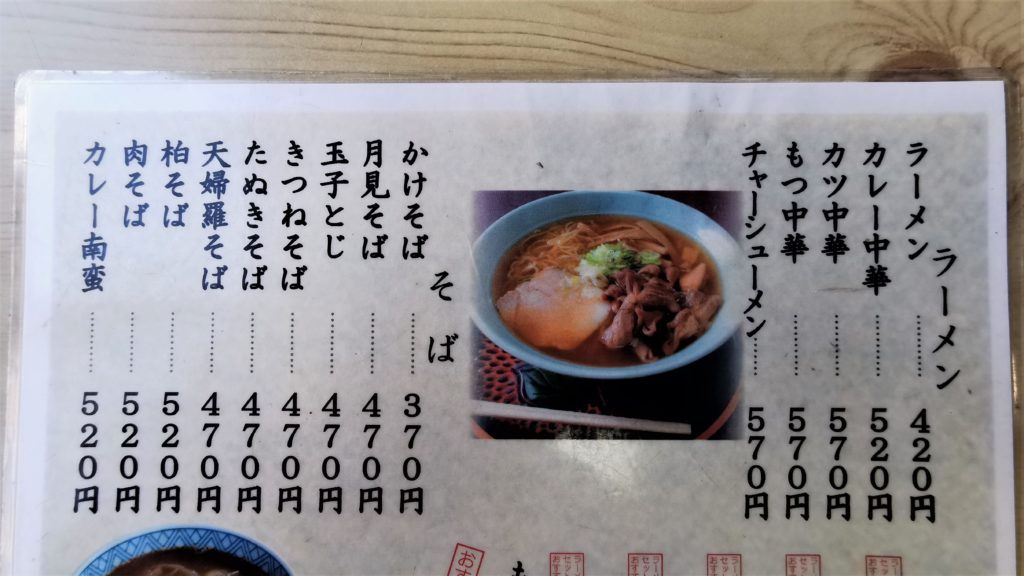 ラーメン
ラーメン………420円
カレー中華………520円
カツ中華………570円
もつ中華………570円
チャーシューメン……570円
そば
かけそば………370円
月見そば………470円
玉子とじ………470円
きつねそば………470円
たぬきそば………470円
天婦羅そば………470円
柏そば………520円
肉そば………520円
カレー南蛮………520円